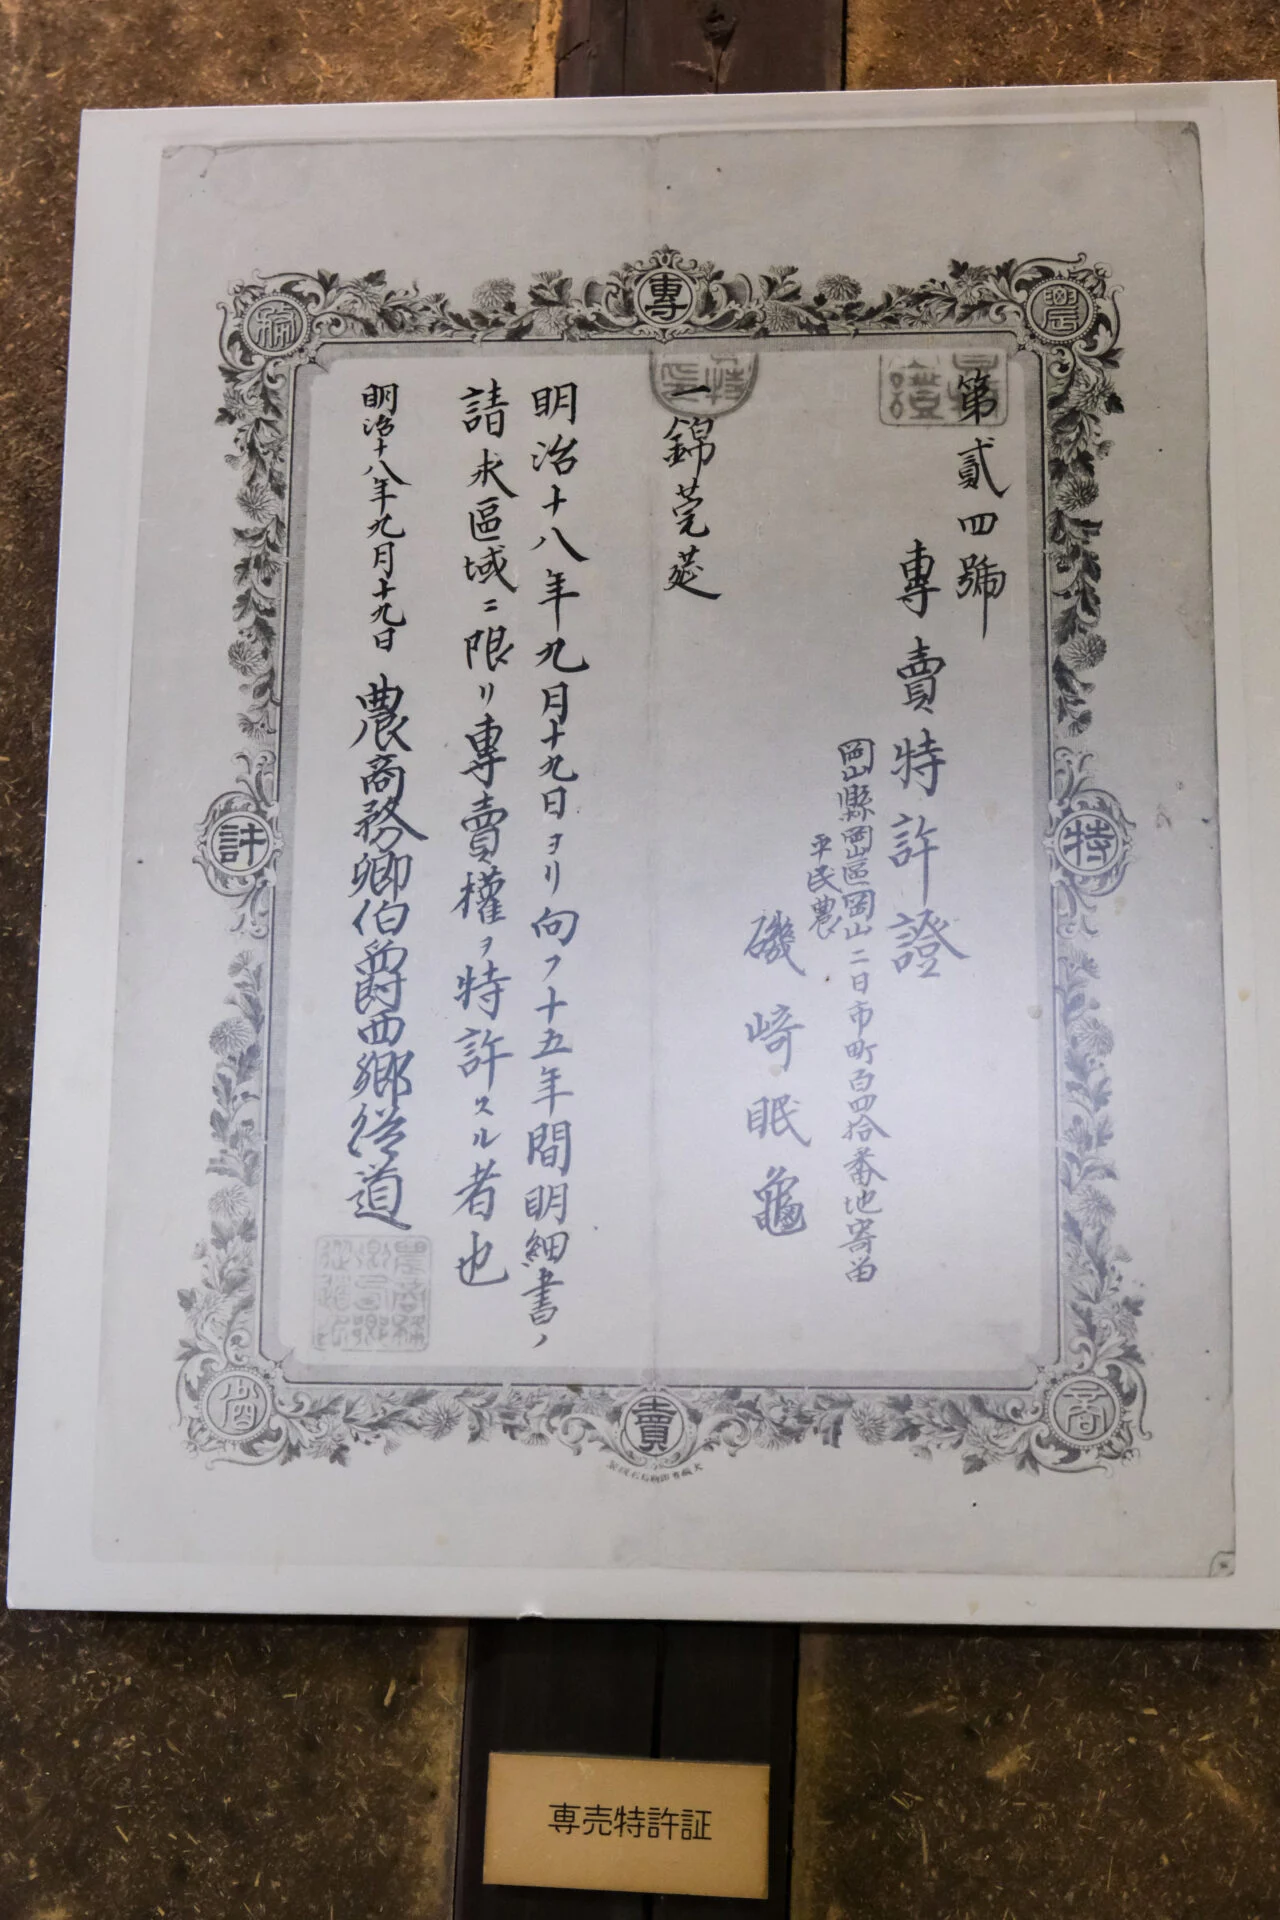 第貳四號
專賣特許證
岡山縣岡山區岡山二日市町百四拾番地寄留
平民農
磯﨑眠龜
一錦莞莚
明治十八年九月十九日ヨリ向フ十五年間明細書ノ
請求區域ニ限リ專賣權ヲ特許スル者也
明治十八年九月十九日 農商務卿伯爵西鄉從道
專
賣
特
許
農
商
務
省
専売特許証